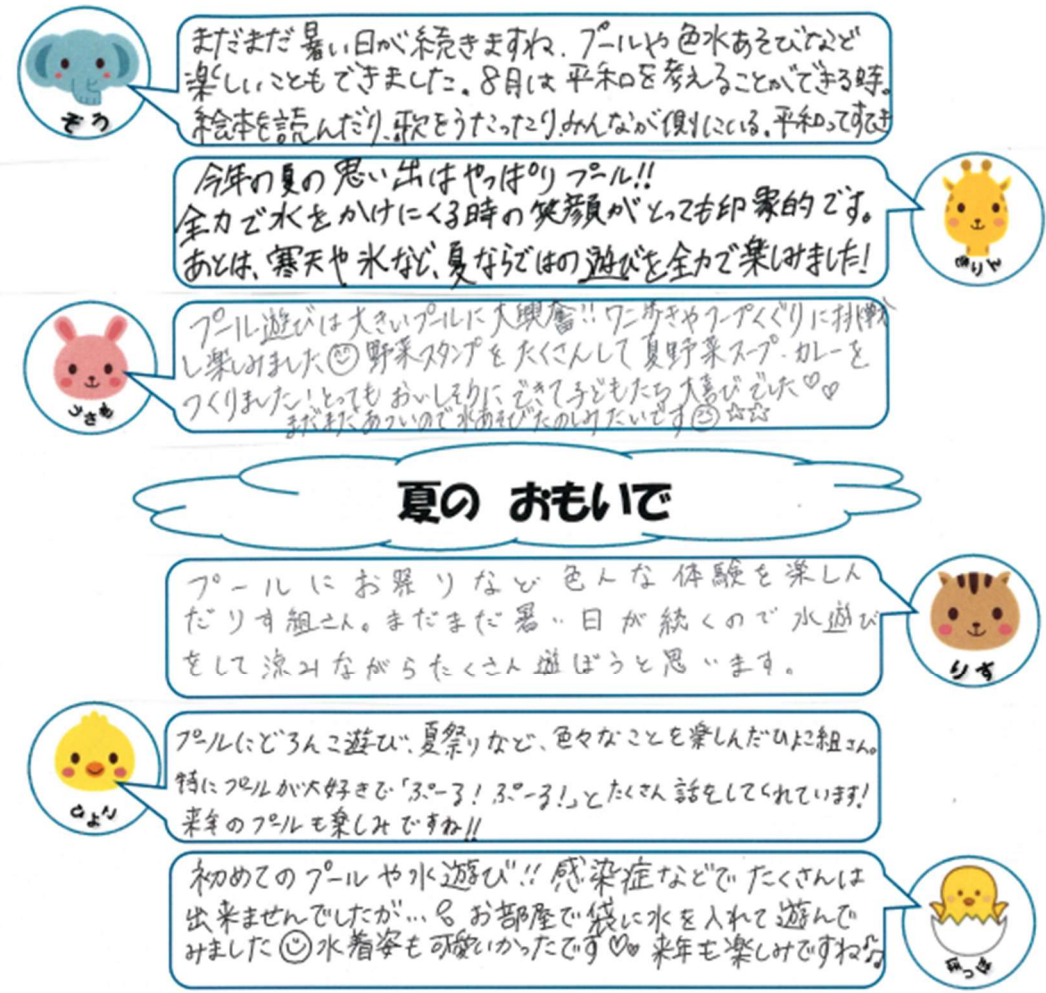 まだまだ暑い日が続きますね、プールや色水あそびなど
楽しいこともできました。8月は平和を考えることができる時。
絵本を読んだり、歌をうたったり、みんなが側にいる。平和ってすてき
ぞう
今年の夏の思い出はやっぱりプール!!
全力で水をかけにくる時の笑顔がとっても印象的です。
あとは、寒天や氷など、夏ならではの遊びを全力で楽しみました!
きりん
プール遊びは大きいプールに大興奮!! ワニ歩きやフープくぐりに挑戦
し楽しみました😊野菜スタンプをたくさんして夏野菜スープ・カレーを
つくりました!とってもおいしそうにできて子どもたち大喜びでした♡♡
まだまだあついので水あそびたのしみたいです😊☆☆
うさぎ
夏の おもいで
プールにお祭りなど色んな体験を楽しん
だりす組さん。まだまだ暑い日が続くので水遊び
をして涼みながらたくさん遊ぼうと思います。
りす
プールにどろんこ遊び、夏祭りなど、色々なことを楽しんだひよこ組さん。
特にプールが大好きで「ぷーる!ぷーる!」とたくさん話をしてくれています!
来年のプールも楽しみですね!!
ひよこ
初めてのプールや水遊び!! 感染症などでたくさんは
出来ませんでしたが… お部屋で袋に水を入れて遊んで
みました😊水着姿も可愛いかったです♡♡ 来年も楽しみですね♫